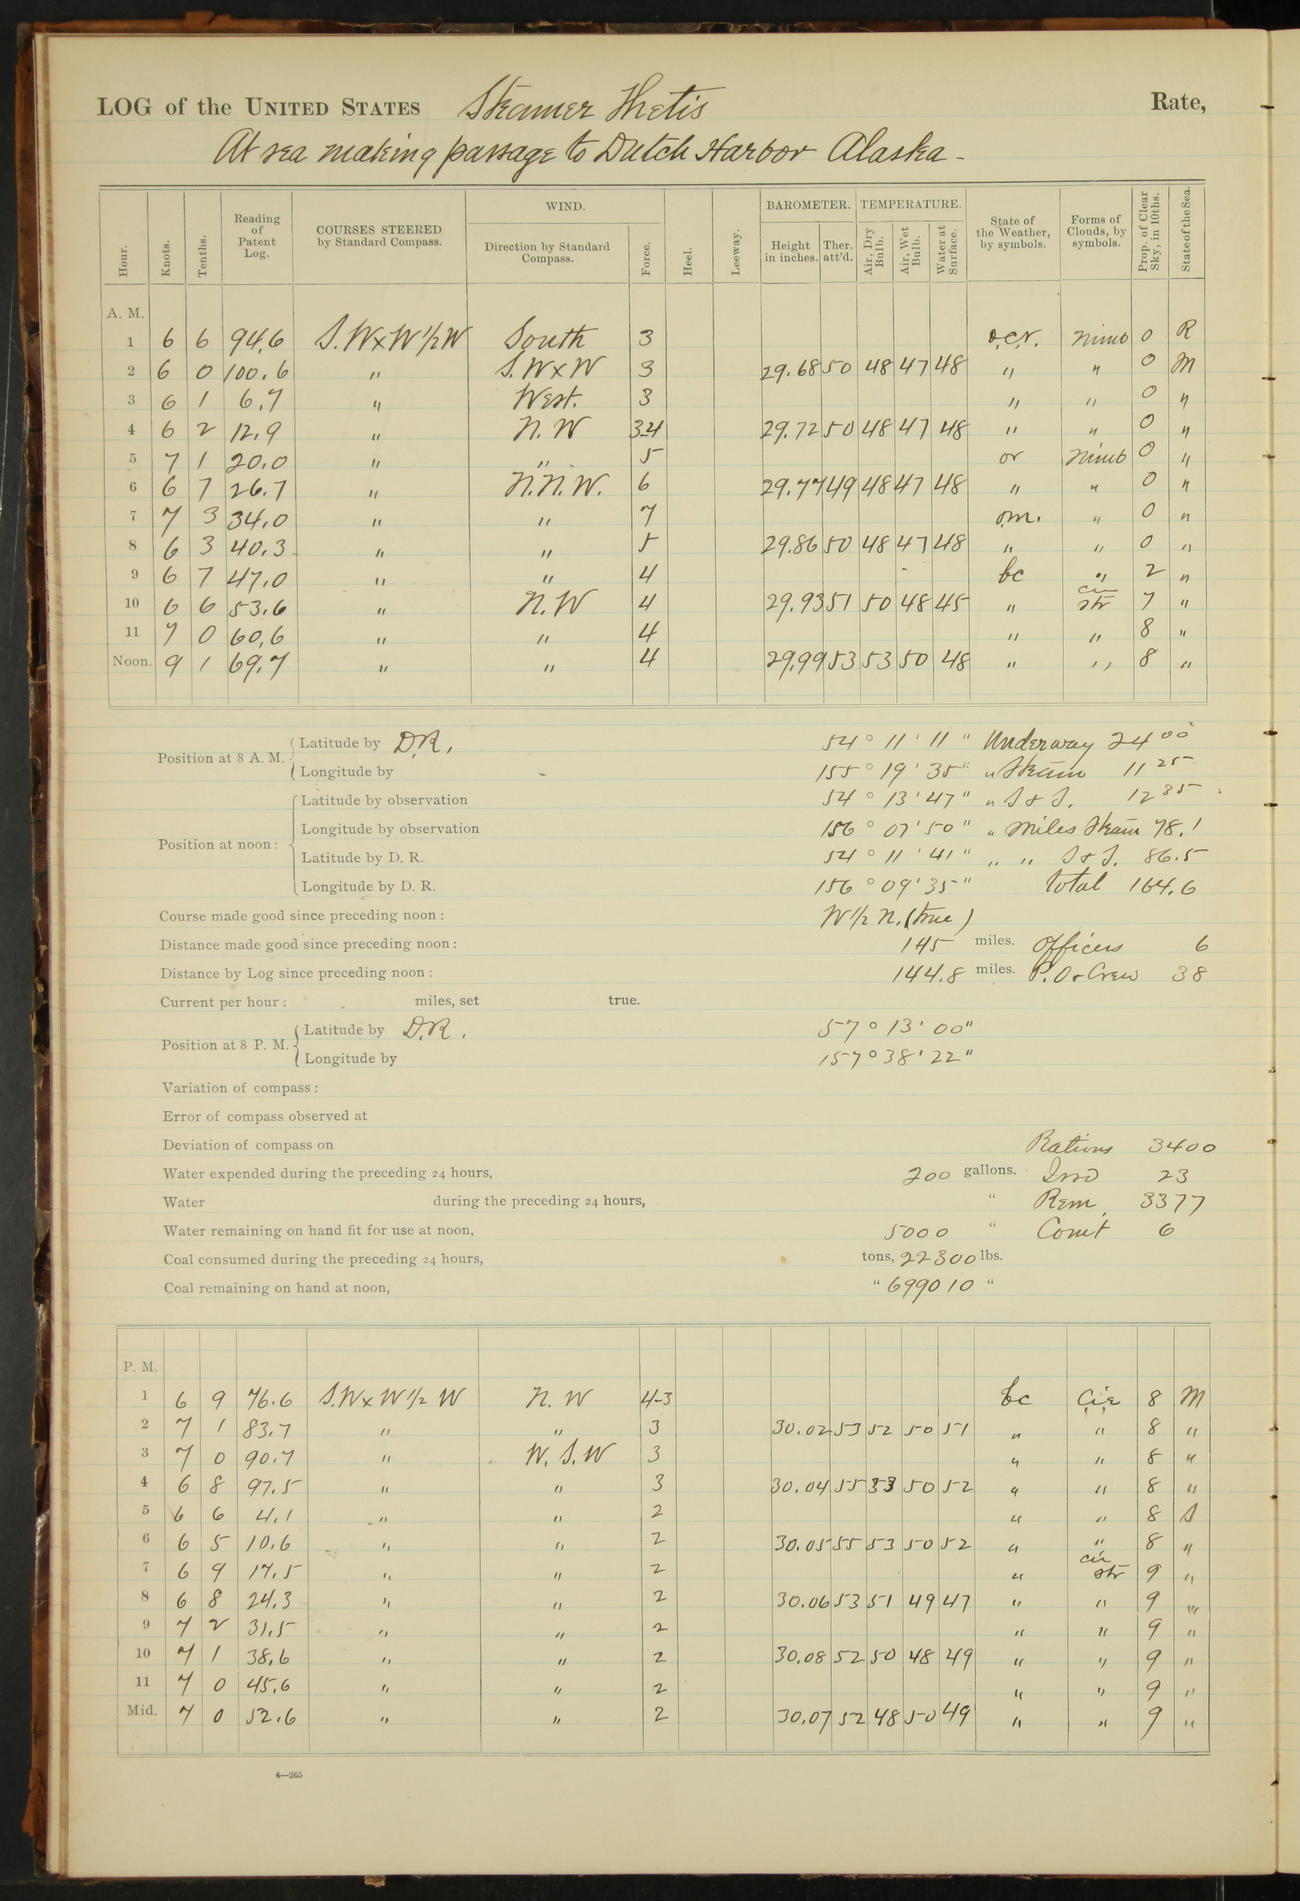 LOG of the UNITED STATES Steamer Thetis Rate,
At sea making passage to Dutch Harbor Alaska -
Hour. Knots. Tenths. Reading of Patent Log. COURSES STEERED by Standard Compass. WIND. Direction by Standard Compass. Force. Heel. Leeway. BAROMETER. Height in inches. Ther. att'd. TEMPERATURE. Air, Dry Bulb. Air, Wet Bulb. Water at Surface. State of the Weather, by symbols. Forms of Clouds, by symbols. Prop. of Clear Sky, in 10ths. State of the Sea.
A. M.
1 6 6 94.6 S.WxW1/2W South 3 o.c.r. nimb 0 R
2 6 0 100.6 " S.WxW 3 29.68 50 48 47 48 " " 0 M
3 6 1 6.7 " West. 3 " " 0 "
4 6 2 12.9 " N.W 3-4 29.72 50 48 47 48 " " 0 "
5 7 1 20.0 " " 5 or nimb 0 "
6 6 7 26.7 " N.N.W. 6 29.77 49 48 47 48 " " 0 "
7 7 3 34.0 " " 7 om. " 0 "
8 6 3 40.3 " " 5 29.86 50 48 47 48 " " 0 "
9 6 7 47.0 " " 4 bc " 2 "
10 6 6 53.6 " N.W 4 29.93 51 50 48 45 " cir str 7 "
11 7 0 60.6 " " 4 " " 8 "
Noon. 9 1 69.7 " " 4 29.99 53 53 50 48 " " 8 "
Position at 8 A. M. Latitude by D.R. 54° 11' 11" Underway 24 00
Longitude by 155° 19' 35" " Steam 11 25
Position at noon: Latitude by observation 54° 13' 47" " S & S. 12 35
Longitude by observation 156° 07' 50" " Miles Steam 78.1
Latitude by D. R. 54° 11' 41" " " S & S. 86.5
Longitude by D. R. 156° 09' 35" total 164.6
Course made good since preceding noon: W 1/2 N. (true)
Distance made good since preceding noon: 145 miles. Officers 6
Distance by Log since preceding noon: 144.8 miles. P.O & Crew 38
Current per hour: miles, set true.
Position at 8 P. M. Latitude by D.R. 57° 13' 00"
Longitude by 157° 38' 22"
Variation of compass:
Error of compass observed at
Deviation of compass on Rations 3400
Water expended during the preceding 24 hours, 200 gallons. Issd 23
Water during the preceding 24 hours, " Rem. 3377
Water remaining on hand fit for use at noon, 5000 " Comt 6
Coal consumed during the preceding 24 hours, tons, 22300 lbs.
Coal remaining on hand at noon, " 699010 "
P. M.
1 6 9 76.6 S.WxW1/2 W N. W 4-3 bc Cir 8 M
2 7 1 83.7 " " 3 30.02 53 52 50 51 " " 8 "
3 7 0 90.7 " W. S. W 3 " " 8 "
4 6 8 97.5 " " 3 30.04 55 53 50 52 " " 8 "
5 6 6 4.1 " " 2 " " 8 S
6 6 5 10.6 " " 2 30.05 55 53 50 52 " " 8 "
7 6 9 17.5 " " 2 " cir str 9 "
8 6 8 24.3 " " 2 30.06 53 51 49 47 " " 9 "
9 7 2 31.5 " " 2 " " 9 "
10 7 1 38.6 " " 2 30.08 52 50 48 49 " " 9 "
11 7 0 45.6 " " 2 " " 9 "
Mid. 7 0 52.6 " " 2 30.07 52 48 50 49 " " 9 "
4—265